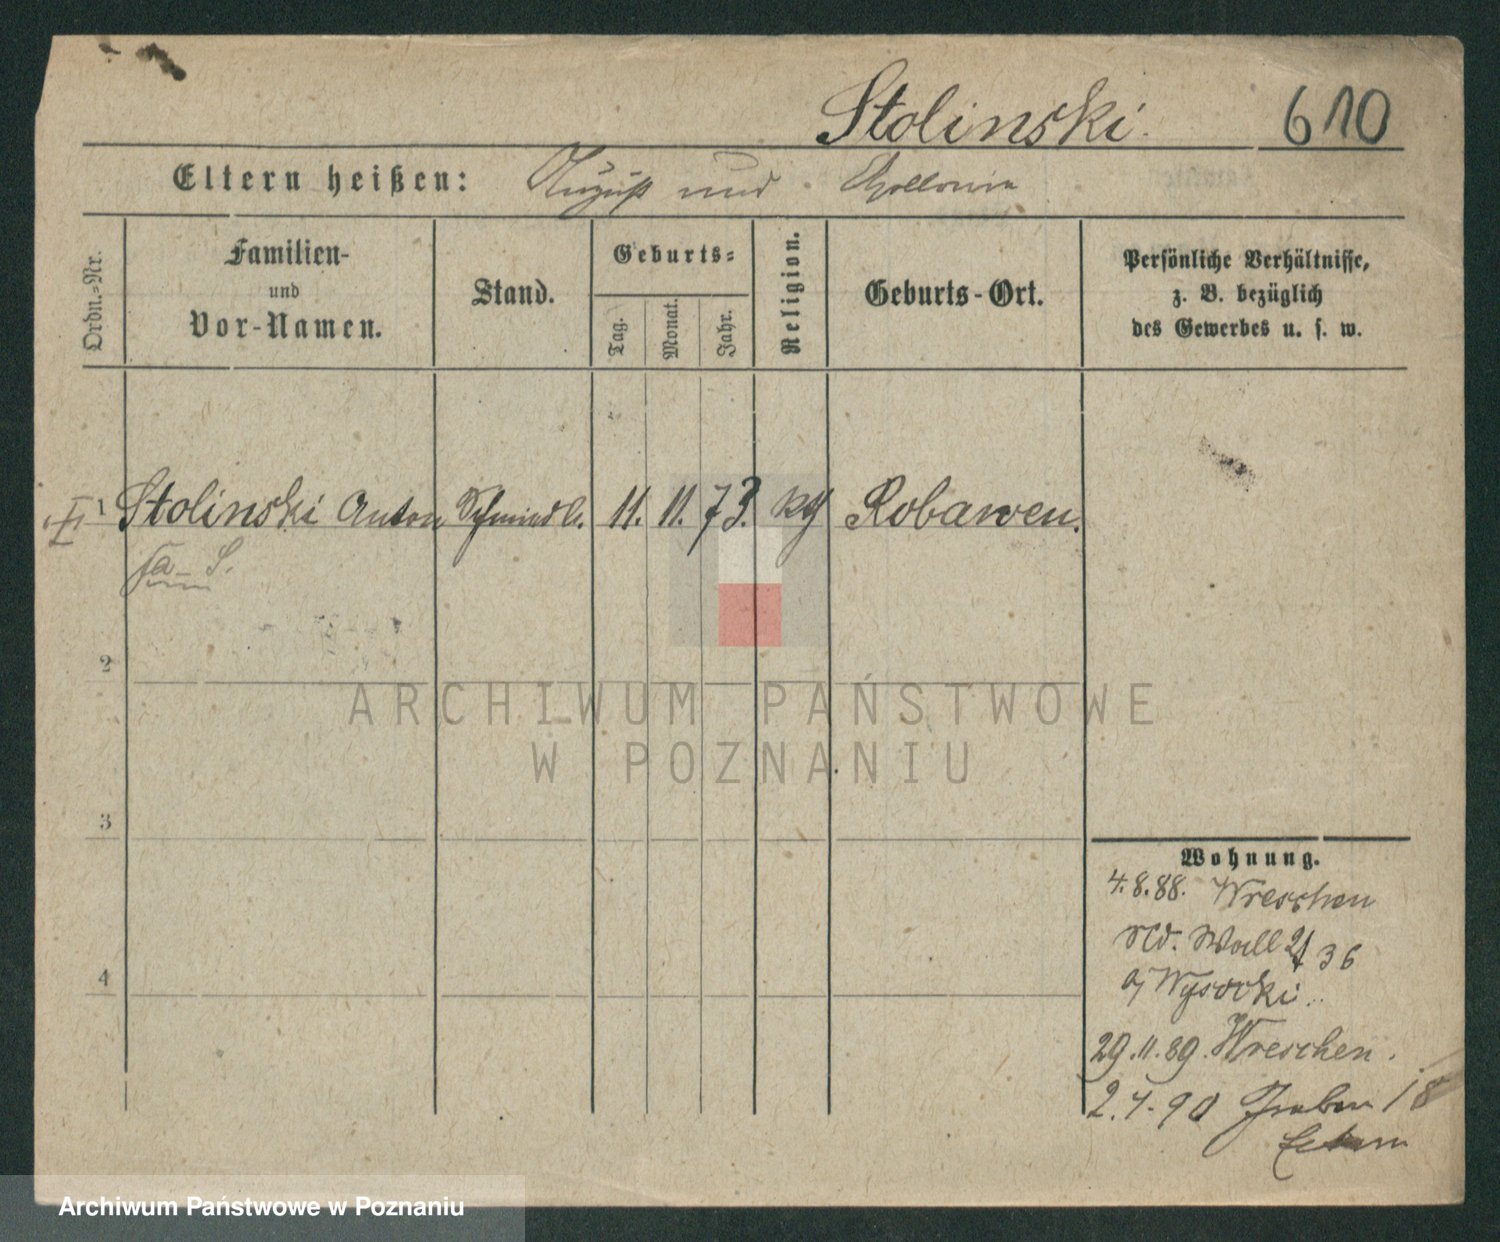 Stolinski. 610
Eltern heißen: August und Apollonia
Ordn.-Nr.
Familien-
und
Vor-Namen.
Stand.
Geburts-
Tag.
Monat.
Jahr.
Religion.
Geburts-Ort.
Persönliche Verhältnisse,
z. B. bezüglich
des Gewerbes u. s. w.
1 Stolinski Anton Schmiedl. 11. 11. 73. Robawen.
2
3
4
Wohnung.
4.8.88. Wreschen
Wall 36
Wysocki
29.11.89. Wreschen.
2.4.90 Graben 18
Eltern
ARCHIWUM PAŃSTWOWE
W POZNANIU
Archiwum Państwowe w Poznaniu